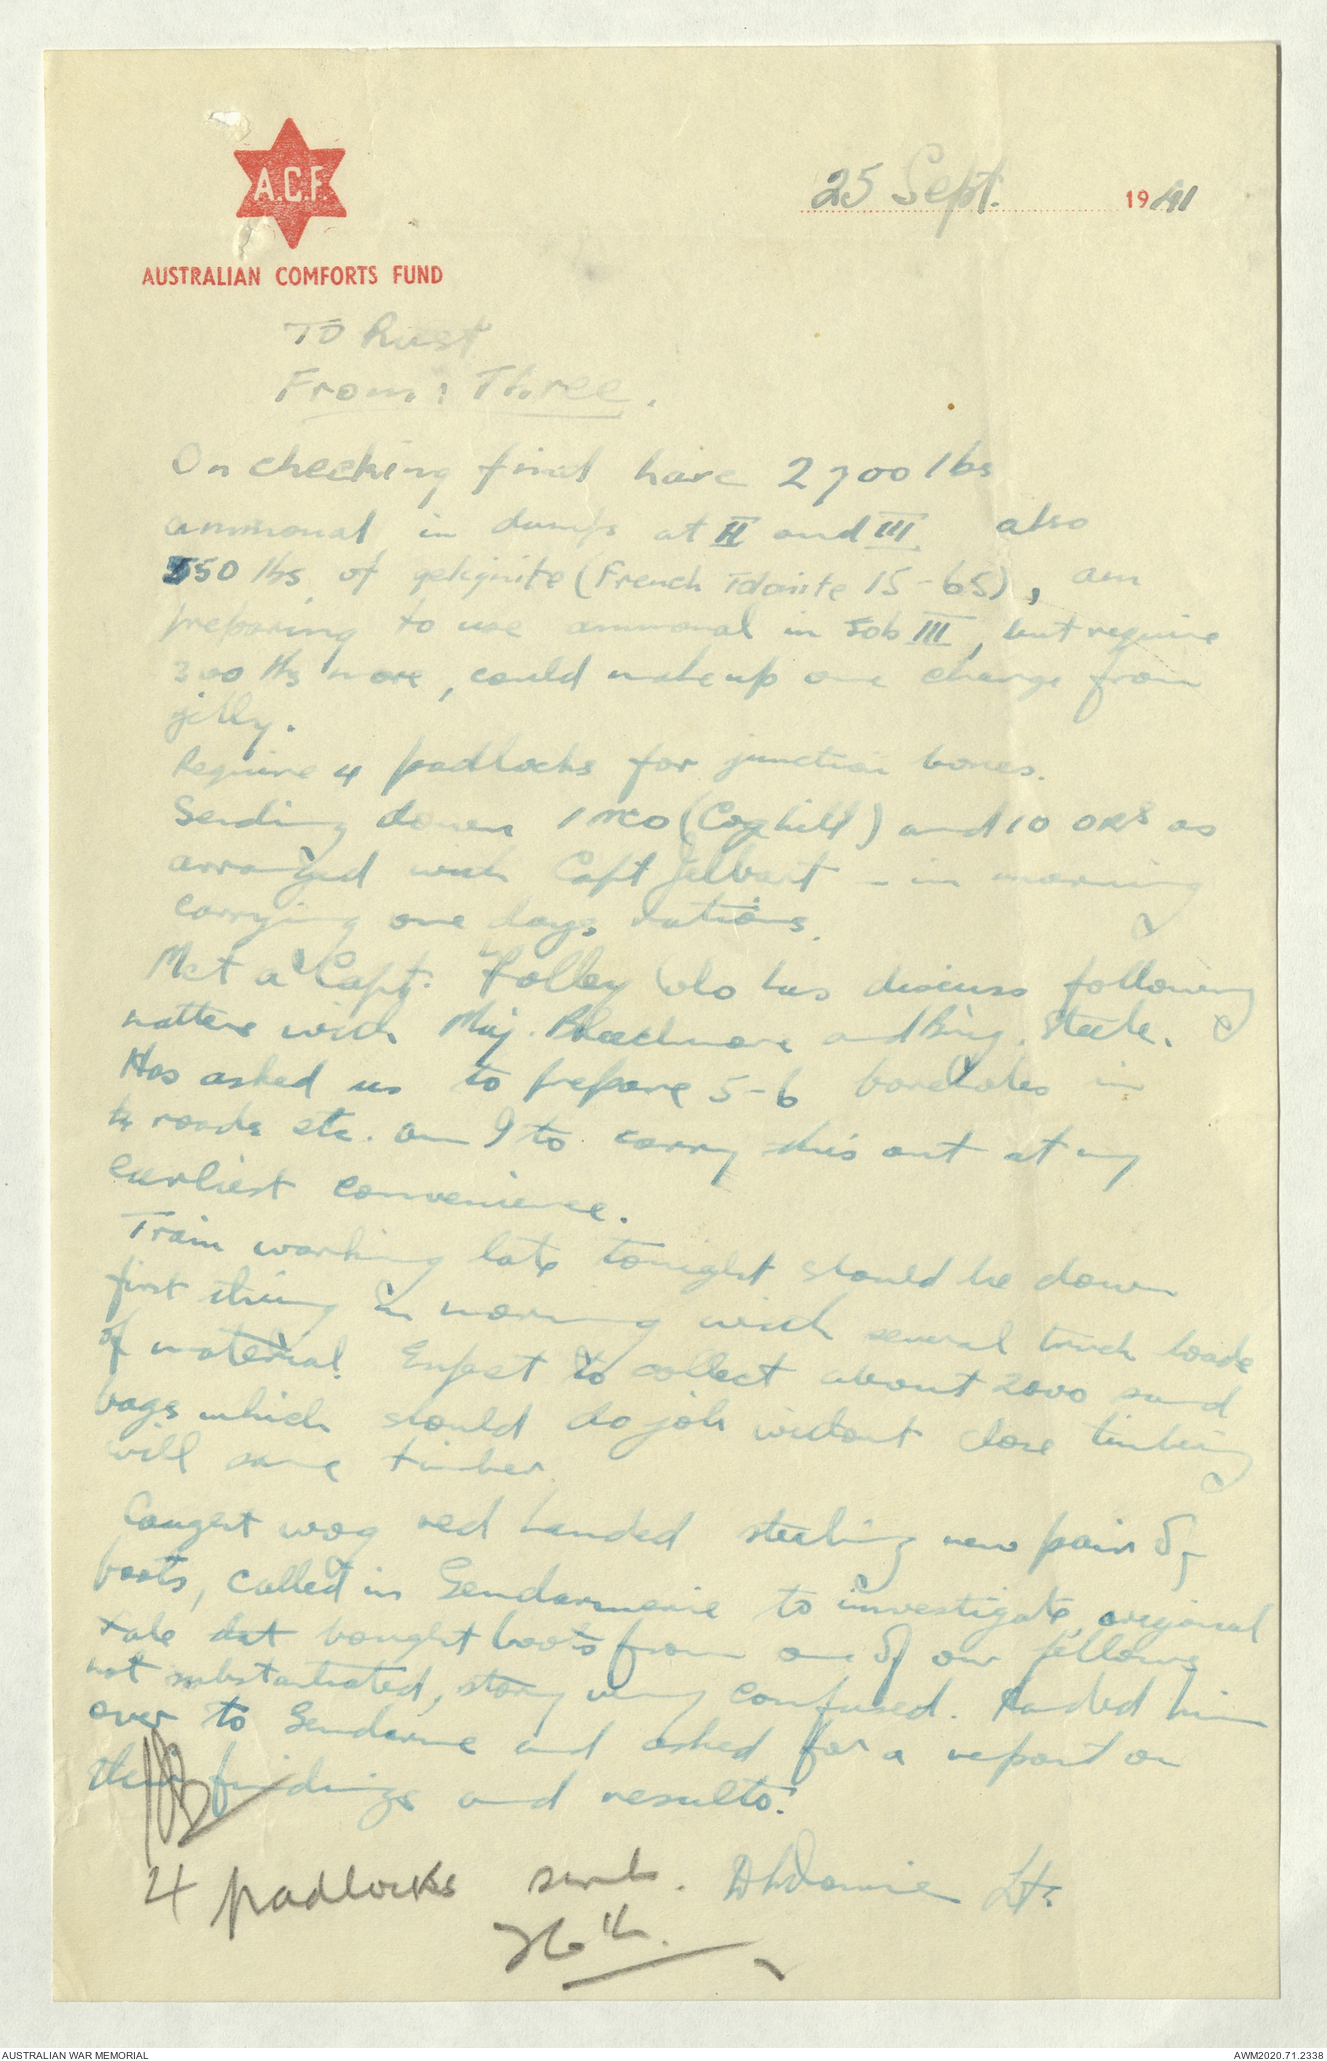 A.C.F.
AUSTRALIAN COMFORTS FUND
25 Sept. 1941
To Rust
From: Three.
On checking find have 2700 lbs
ammonal in dumps at II and III also
550 lbs of gelignite (French 15-65), am
preparing to use ammonal in Job III, but require
300 lbs more, could make up one charge from
jelly.
Require 4 padlocks for junction boxes.
Sending down 1 NCO (Coghill) and 10 ORS as
arranged with Capt Jelbart - in morning
carrying one days rations.
Met a Capt. Folley who has discuss following
matters with Maj. and Brig. Steele.
Has asked us to prepare 5-6 boreholes in
roads etc. am I to carry this out at my
earliest convenience.
Train working late tonight should be down
first thing in morning with several truck loads
of material. Expect to collect about 2000 sand
bags which should do job without close timbering
will save timber.
Caught wog red handed stealing new pair of
boots, called in Gendarmerie to investigate, origional
tale that bought boots from one of our fellows
not substantiated, story very confused. Handed him
over to Gendarme and asked for a report on
their findings and results.
4 padlocks sent. Lt.
26th.
AUSTRALIAN WAR MEMORIAL
AWM2020.71.2338